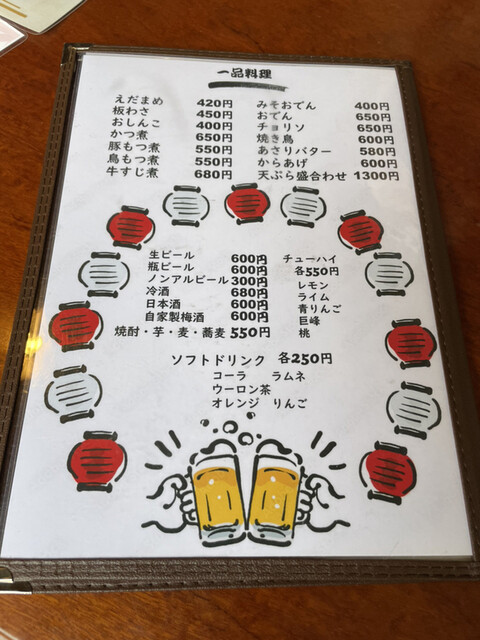 一品料理
えだまめ 420円
板わさ 450円
おしんこ 400円
かつ煮 650円
豚もつ煮 550円
鳥もつ煮 550円
牛すじ煮 680円
みそおでん 400円
おでん 650円
チョリソ 650円
焼き鳥 600円
あさりバター 580円
からあげ 600円
天ぷら盛合わせ 1300円
生ビール 600円
瓶ビール 600円
ノンアルビール 300円
冷酒 680円
日本酒 600円
自家製梅酒 600円
焼酎・芋・麦・蕎麦 550円
チューハイ
各550円
レモン
ライム
青りんご
巨峰
桃
ソフトドリンク 各250円
コーラ ラムネ
ウーロン茶
オレンジ りんご